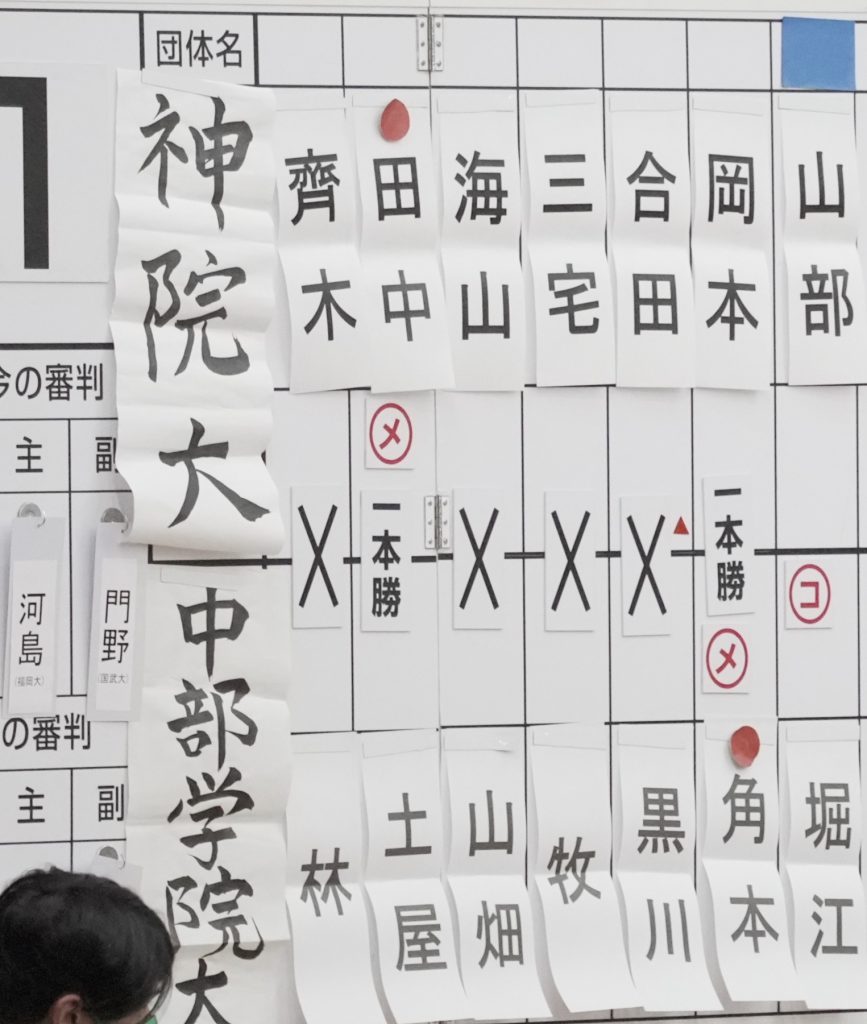 団体名
神院大
齊木
田中
海山
三宅
合田
岡本
山部
今の審判
主
副
河島
(福岡大)
門野
(国武大)
メ
一本勝
一本勝
メ
コ
の審判
主
副
中部学院大
林
土屋
山畑
牧
黒川
角本
堀江